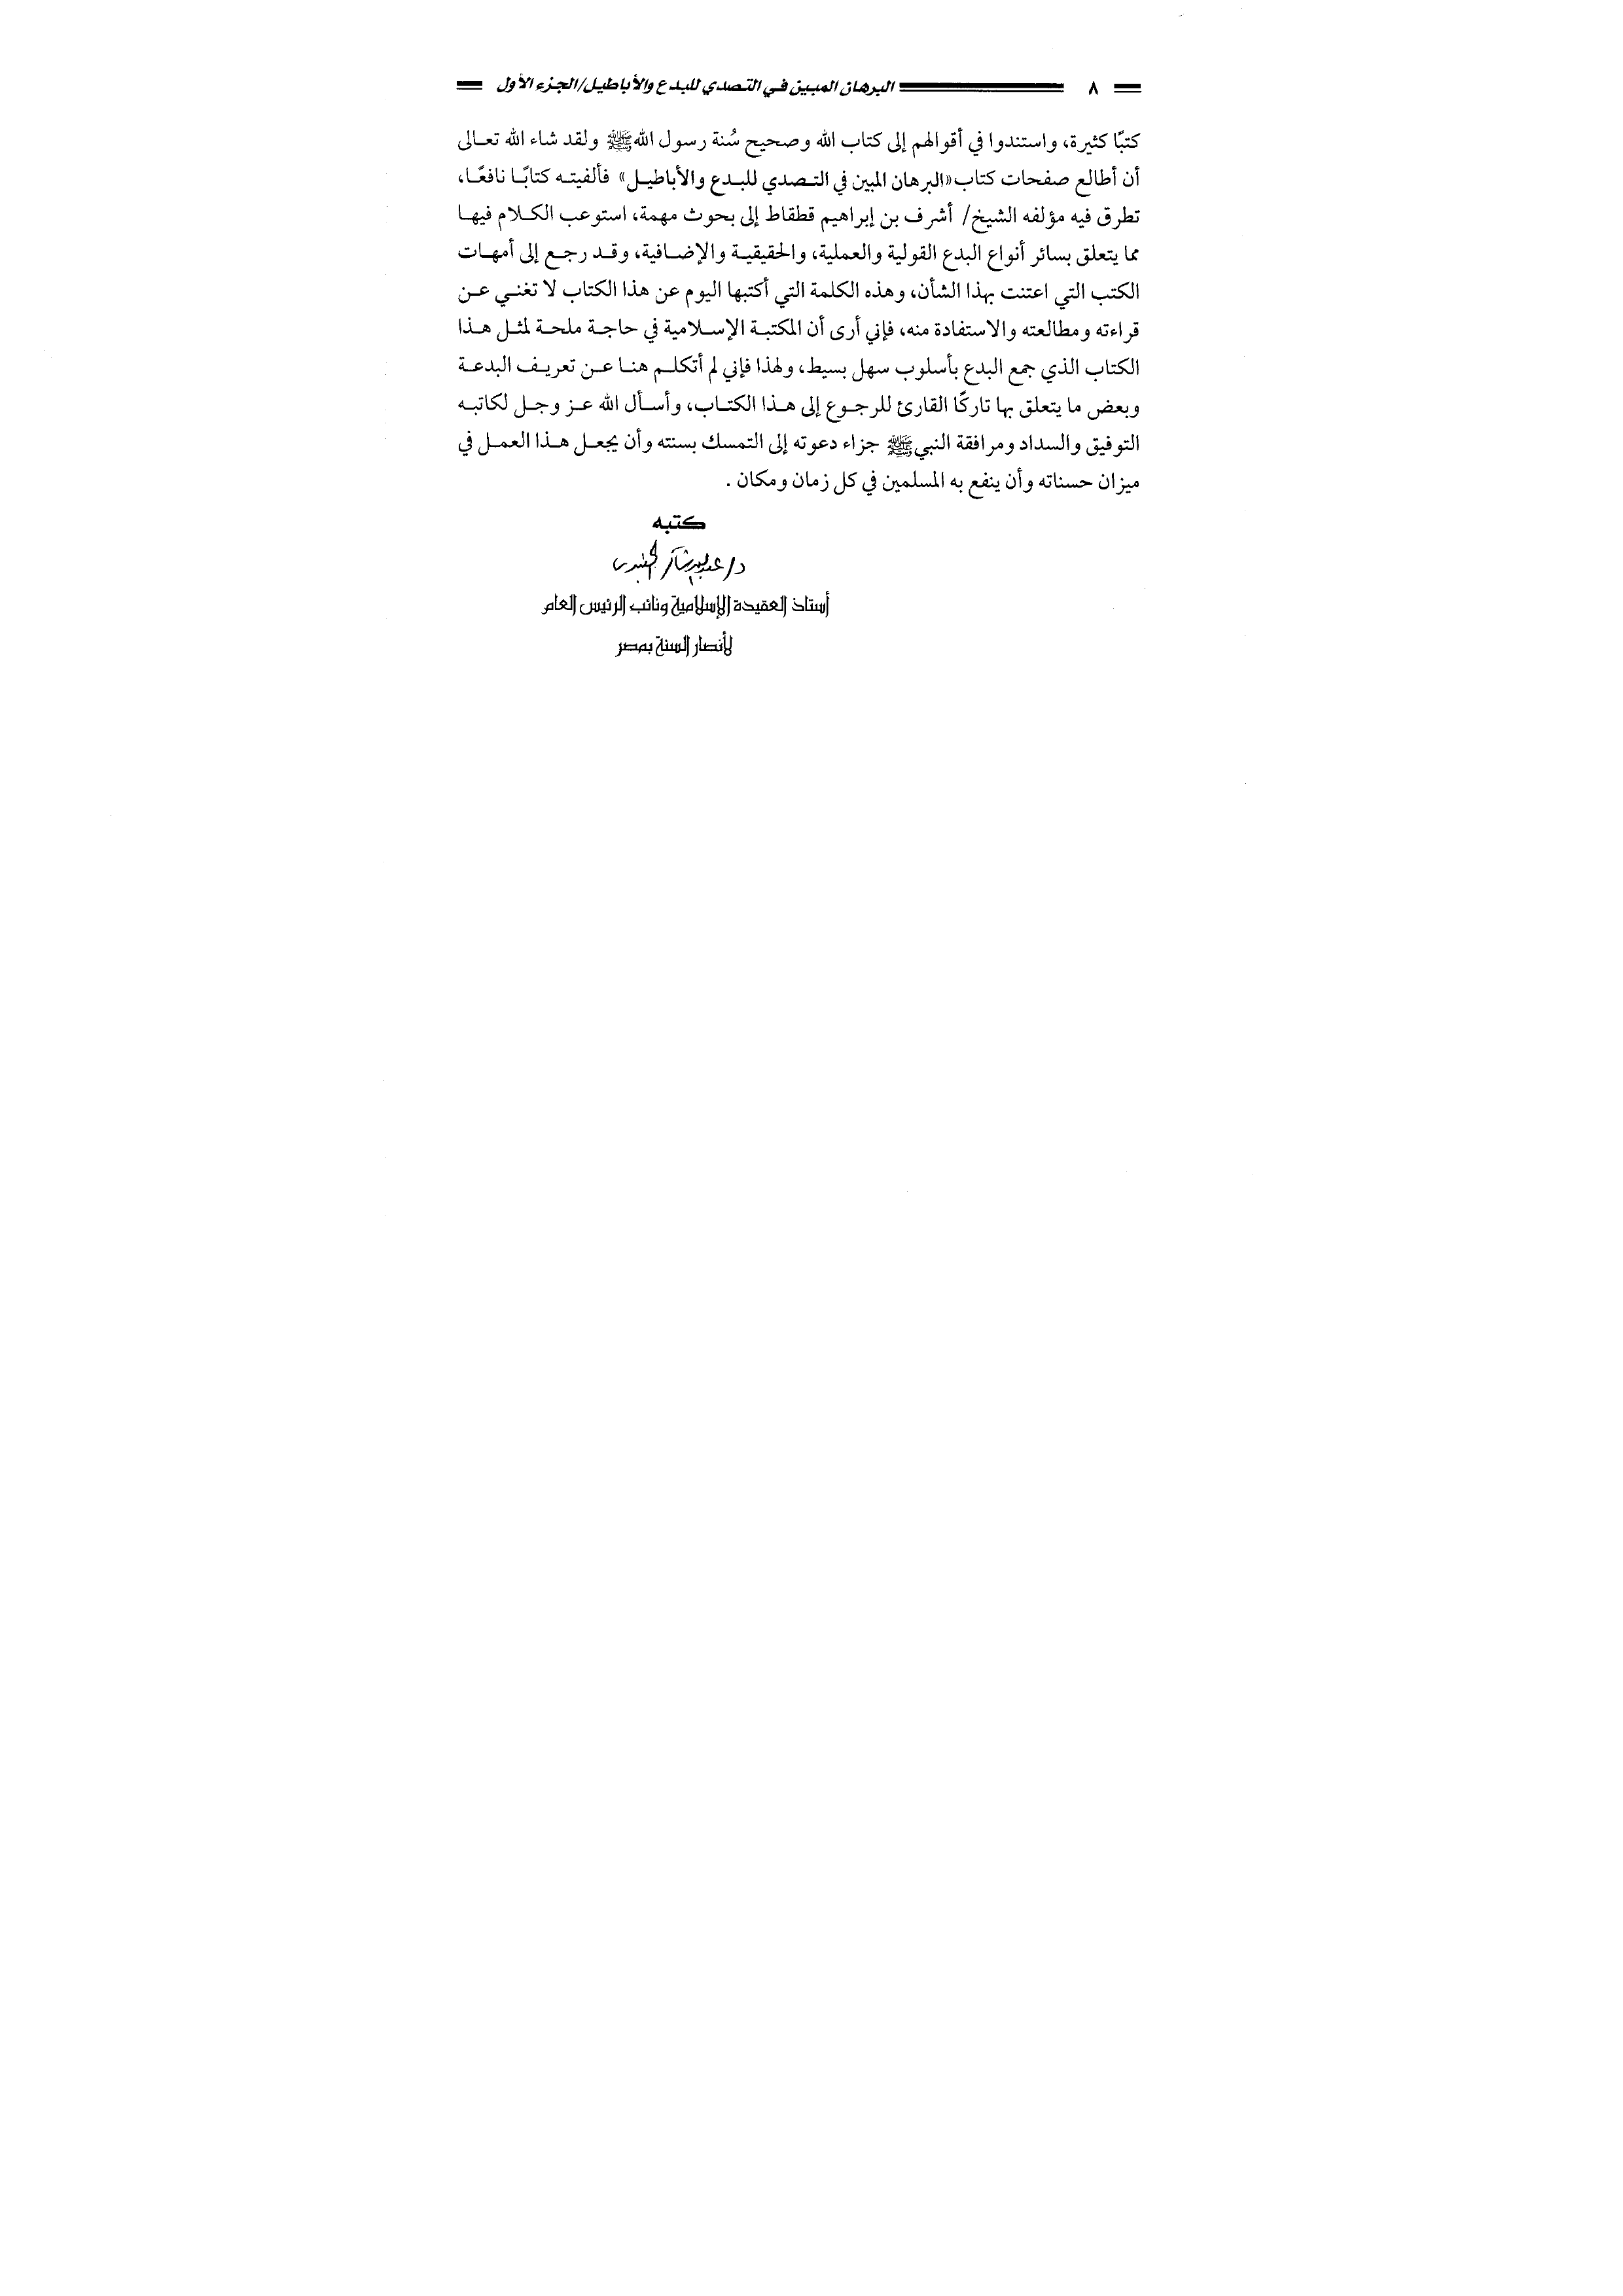 ٨ البرهان المبين في التصدي للبدع والأباطيل/الجزء الأول
كتبًا كثيرة، واستندوا في أقوالهم إلى كتاب الله وصحيح سُنة رسول اللهﷺ ولقد شاء الله تعالى
أن أطالع صفحات كتاب«البرهان المبين في التصدي للبدع والأباطيل» فألفيته كتابًا نافعًا،
تطرق فيه مؤلفه الشيخ/ أشرف بن إبراهيم قطقاط إلى بحوث مهمة، استوعب الكلام فيها
مما يتعلق بسائر أنواع البدع القولية والعملية، والحقيقية والإضافية، وقد رجع إلى أمهات
الكتب التي اعتنت بهذا الشأن، وهذه الكلمة التي أكتبها اليوم عن هذا الكتاب لا تغني عن
قراءته ومطالعته والاستفادة منه، فإني أرى أن المكتبة الإسلامية في حاجة ملحة لمثل هذا
الكتاب الذي جمع البدع بأسلوب سهل بسيط، ولهذا فإني لم أتكلم هنا عن تعريف البدعة
وبعض ما يتعلق بها تاركًا القارئ للرجوع إلى هذا الكتاب، وأسأل الله عز وجل لكاتبه
التوفيق والسداد ومرافقة النبيﷺ جزاء دعوته إلى التمسك بسنته وأن يجعل هذا العمل في
ميزان حسناته وأن ينفع به المسلمين في كل زمان ومكان .
كتبه
د/ عبدالله شاكر الجنيدى
أستاذ العقيدة الإسلامية ونائب الرئيس العام
لأنصار السنة بمصر